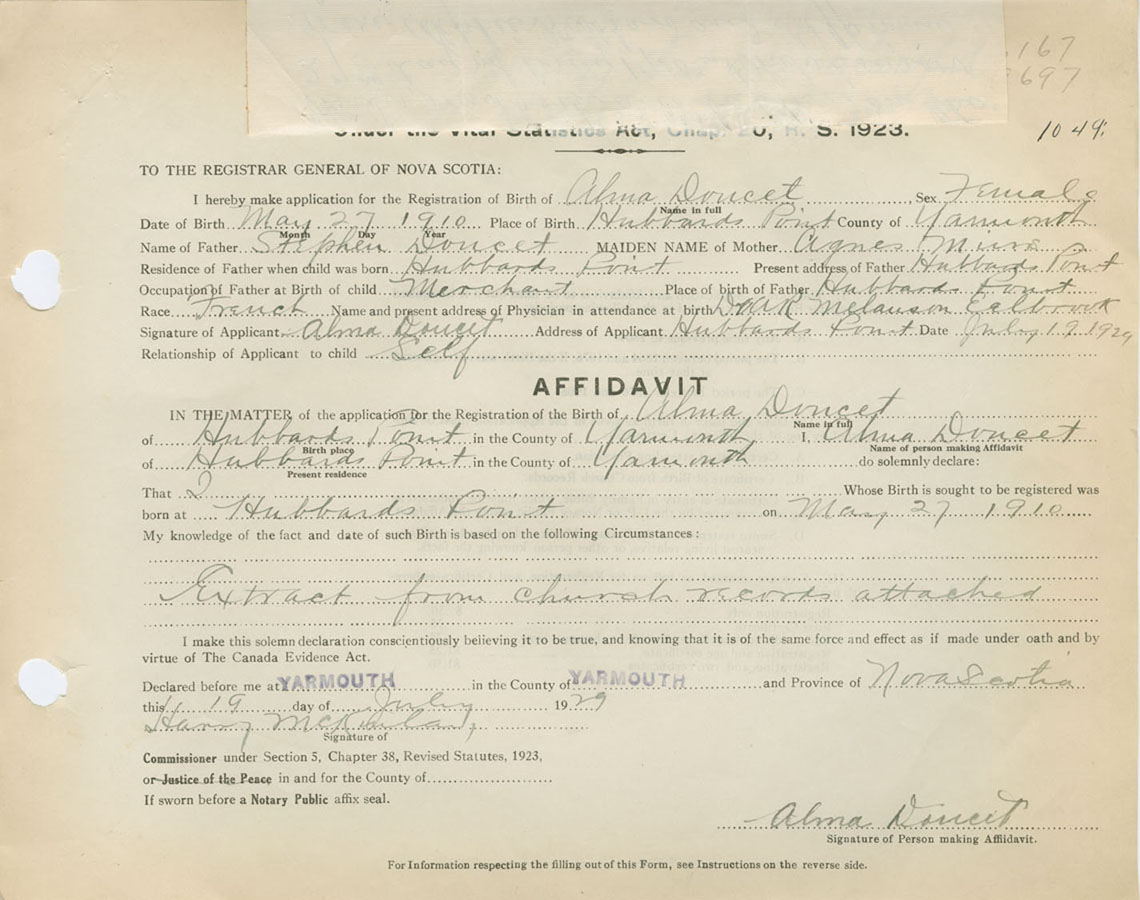 167
697
Under the Vital Statistics Act, Chap. 20, R. S. 1923.
1049
TO THE REGISTRAR GENERAL OF NOVA SCOTIA:
I hereby make application for the Registration of Birth of Alma Doucet Sex Female
Name in full
Date of Birth May 27 1910 Place of Birth Hubbards Point County of Yarmouth
Month Day Year
Name of Father Stephen Doucet MAIDEN NAME of Mother Agnes
Residence of Father when child was born Hubbards Point Present address of Father Hubbards Point
Occupation of Father at Birth of child Merchant Place of birth of Father Hubbards Point
Race French Name and present address of Physician in attendance at birth Melanson Eelbrook
Signature of Applicant Alma Doucet Address of Applicant Hubbards Point Date July 19 1929
Relationship of Applicant to child Self
AFFIDAVIT
IN THE MATTER of the application for the Registration of the Birth of Alma Doucet
Name in full
of Hubbards Point in the County of Yarmouth I, Alma Doucet
Birth place Name of person making Affidavit
of Hubbards Point in the County of Yarmouth do solemnly declare:
Present residence
That I Whose Birth is sought to be registered was
born at Hubbards Point on May 27 1910
My knowledge of the fact and date of such Birth is based on the following Circumstances:
Extract from church records attached
I make this solemn declaration conscientiously believing it to be true, and knowing that it is of the same force and effect as if made under oath and by
virtue of The Canada Evidence Act.
Declared before me at YARMOUTH in the County of YARMOUTH and Province of Nova Scotia
this 19 day of July 1929
Harry
Signature of
Commissioner under Section 5, Chapter 38, Revised Statutes, 1923,
or Justice of the Peace in and for the County of
If sworn before a Notary Public affix seal.
Alma Doucet
Signature of Person making Affidavit.
For Information respecting the filling out of this Form, see Instructions on the reverse side.